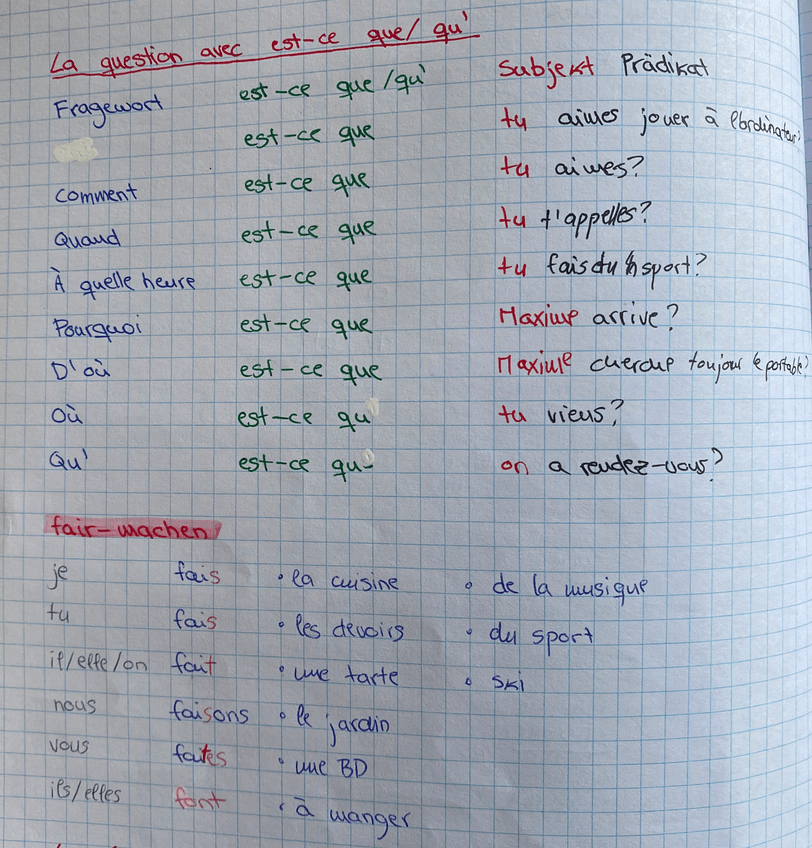 La question avec est-ce que/qu'
Fragewort est-ce que/qu' Subjekt Prädikat
est-ce que tu aimes jouer à l'ordinateur?
Comment est-ce que tu aimes?
Quand est-ce que tu t'appelles?
À quelle heure est-ce que tu fais du sport?
Pourquoi est-ce que Maxime arrive?
D'où est-ce que Maxime cherche toujour le portable?
Où est-ce qu' tu viens?
Qu' est-ce qu- on a rendez-vous?
fair-machen
je fais • la cuisine • de la musique
tu fais • les devoirs • du sport
il/elle/on fait • une tarte • ski
nous faisons • le jardin
vous faites • une BD
ils/elles font • à manger